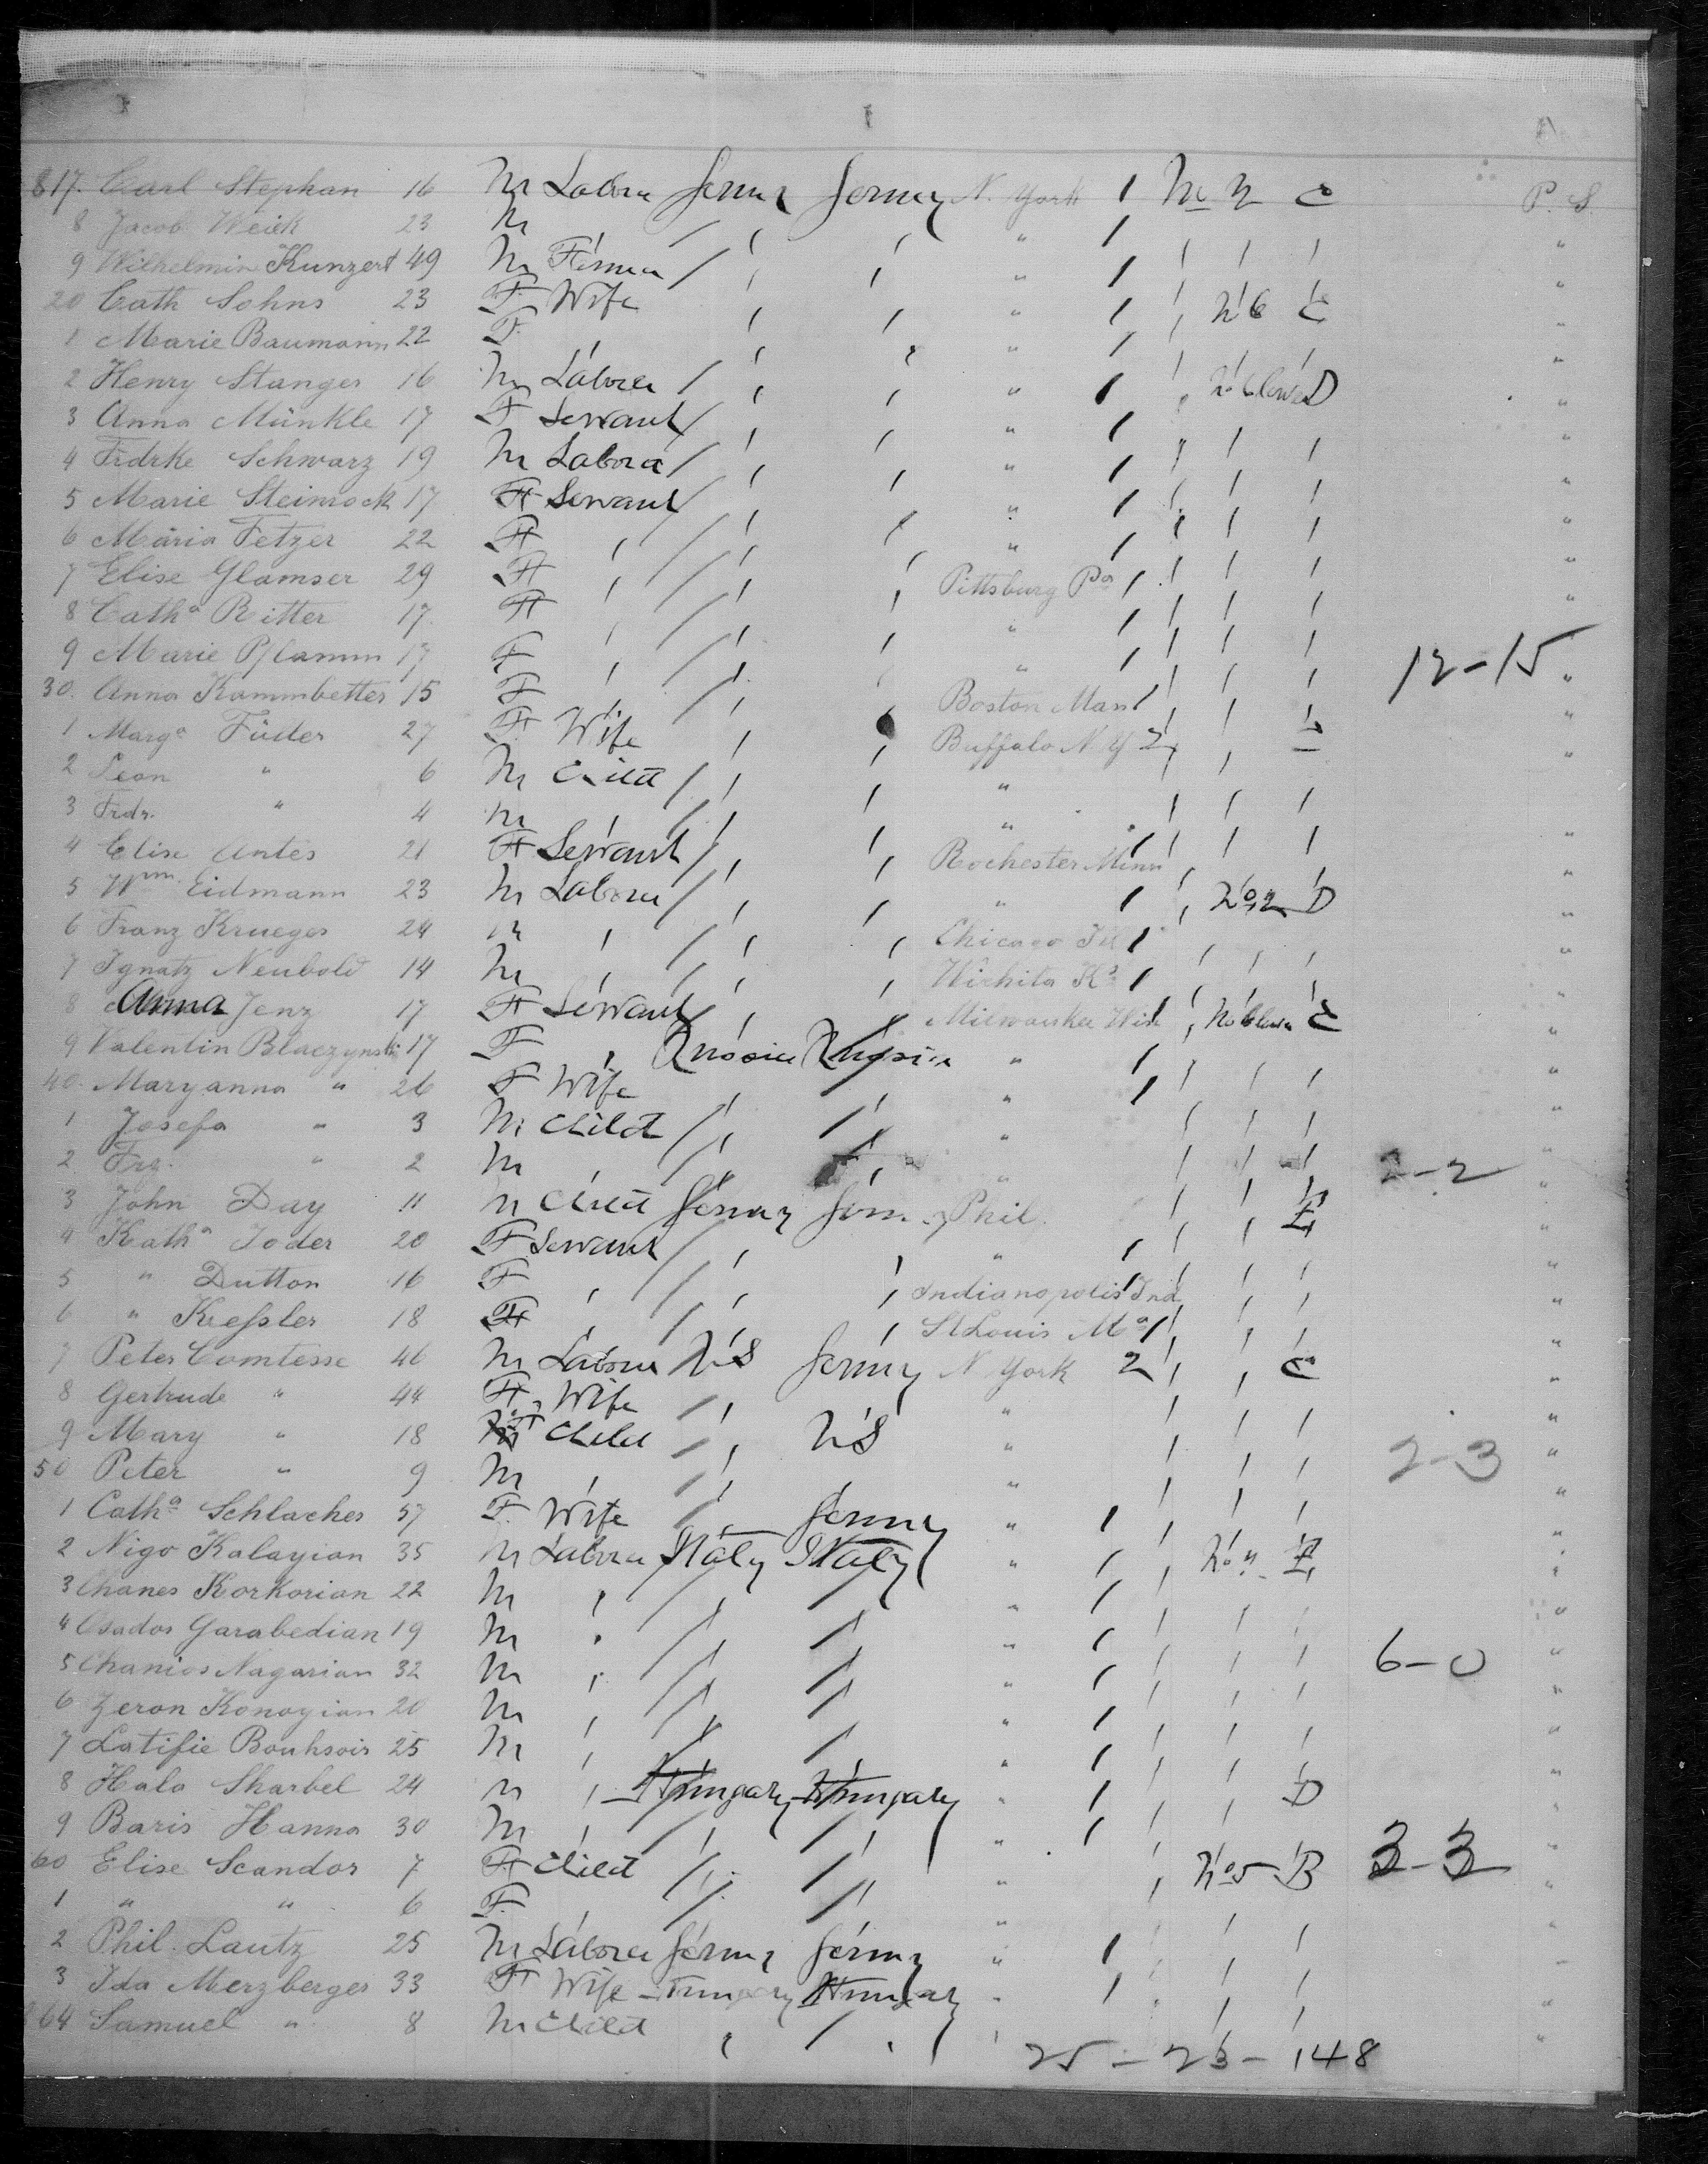 817. Carl Stephan 16 M Labor Germy Germy N. York 1 C P. S.
8 Jacob Weick 23 M " 1 "
9 Wilhelmine Kunzert 49 M Farmer " 1 "
20 Cath Sohns 23 F. Wife " 1 No 6 C "
1 Marie Baumann 22 F. " 1 "
2 Henry Stanger 16 M Labor " 1 D "
3 Anna Münkle 17 F Servant " 1 "
4 Frdrke Schwarz 19 M Labor " 1 "
5 Marie Steinrock 17 F Servant " 1 "
6 Maria Fetzer 22 F " 1 "
7 Elise Glamser 29 F Pittsburg Pa 1 "
8 Catha Ritter 17. F " 1 "
9 Marie Pflamm 17 F " 1 12-15 "
30. Anna Kammbetter 15 F Boston Mass 1 "
1 Marga Füder 27 F Wife Buffalo N.Y 2 "
2 Leon " 6 M Child "
3 Frdr. " 4 M "
4 Elise Antes 21 F Servant Rochester Minn 1 "
5 Wm Eidmann 23 M Labor " 1 No 2 D "
6 Franz Krueger 24 M Chicago Ill 1 "
7 Ignatz Neubold 14 M Wichita Ks 1 "
8 Anna Jenz 17 F Servant Milwaukee Wis 1 C "
9 Valentin Blaczynski 17 F Russia Russia " 1 "
40. Maryanna " 26 F Wife " 1 "
1 Josefa " 3 M Child " "
2 Frz. " 2 M " 2-2 "
3 John Day 11 M Child Germay Germ. y Phil. E "
4 Katha Joder 20 F Servant " 1 "
5 " Dutton 16 F Indianopolis Ind 1 "
6 " Keßler 18 F St Louis Mo 1 "
7 Peter Comtesse 46 M Labor US Germy N York 2 C "
8 Gertrude " 44 F Wife " "
9 Mary " 18 F Child US " 2-3 "
50 Peter " 9 M " "
1 Catha Schlacher 57 F. Wife Germy " 1 "
2 Nigo Kalayian 35 M Labor Italy Italy " 1 E "
3 Chanes Korkorian 22 M " 1 "
4 Osados Garabedian 19 M " 1 "
5 Chanios Nagarian 32 M " 1 6-0 "
6 Zeron Konoyian 20 M " 1 "
7 Latifie Bouhsoir 25 M " 1 "
8 Hala Sharbel 24 M Hungary Hungary " 1 D "
9 Baris Hanna 30 M " 1 "
60 Elise Scandor 7 F Child " No 5 B 3-3 "
1 " " 6 F. " "
2 Phil. Lautz 25 M Labor Germy Germy " 1 "
3 Ida Merzberger 33 F Wife Hungary Hungary " 1 "
864 Samuel " 8 M Child "
25 - 23 - 148